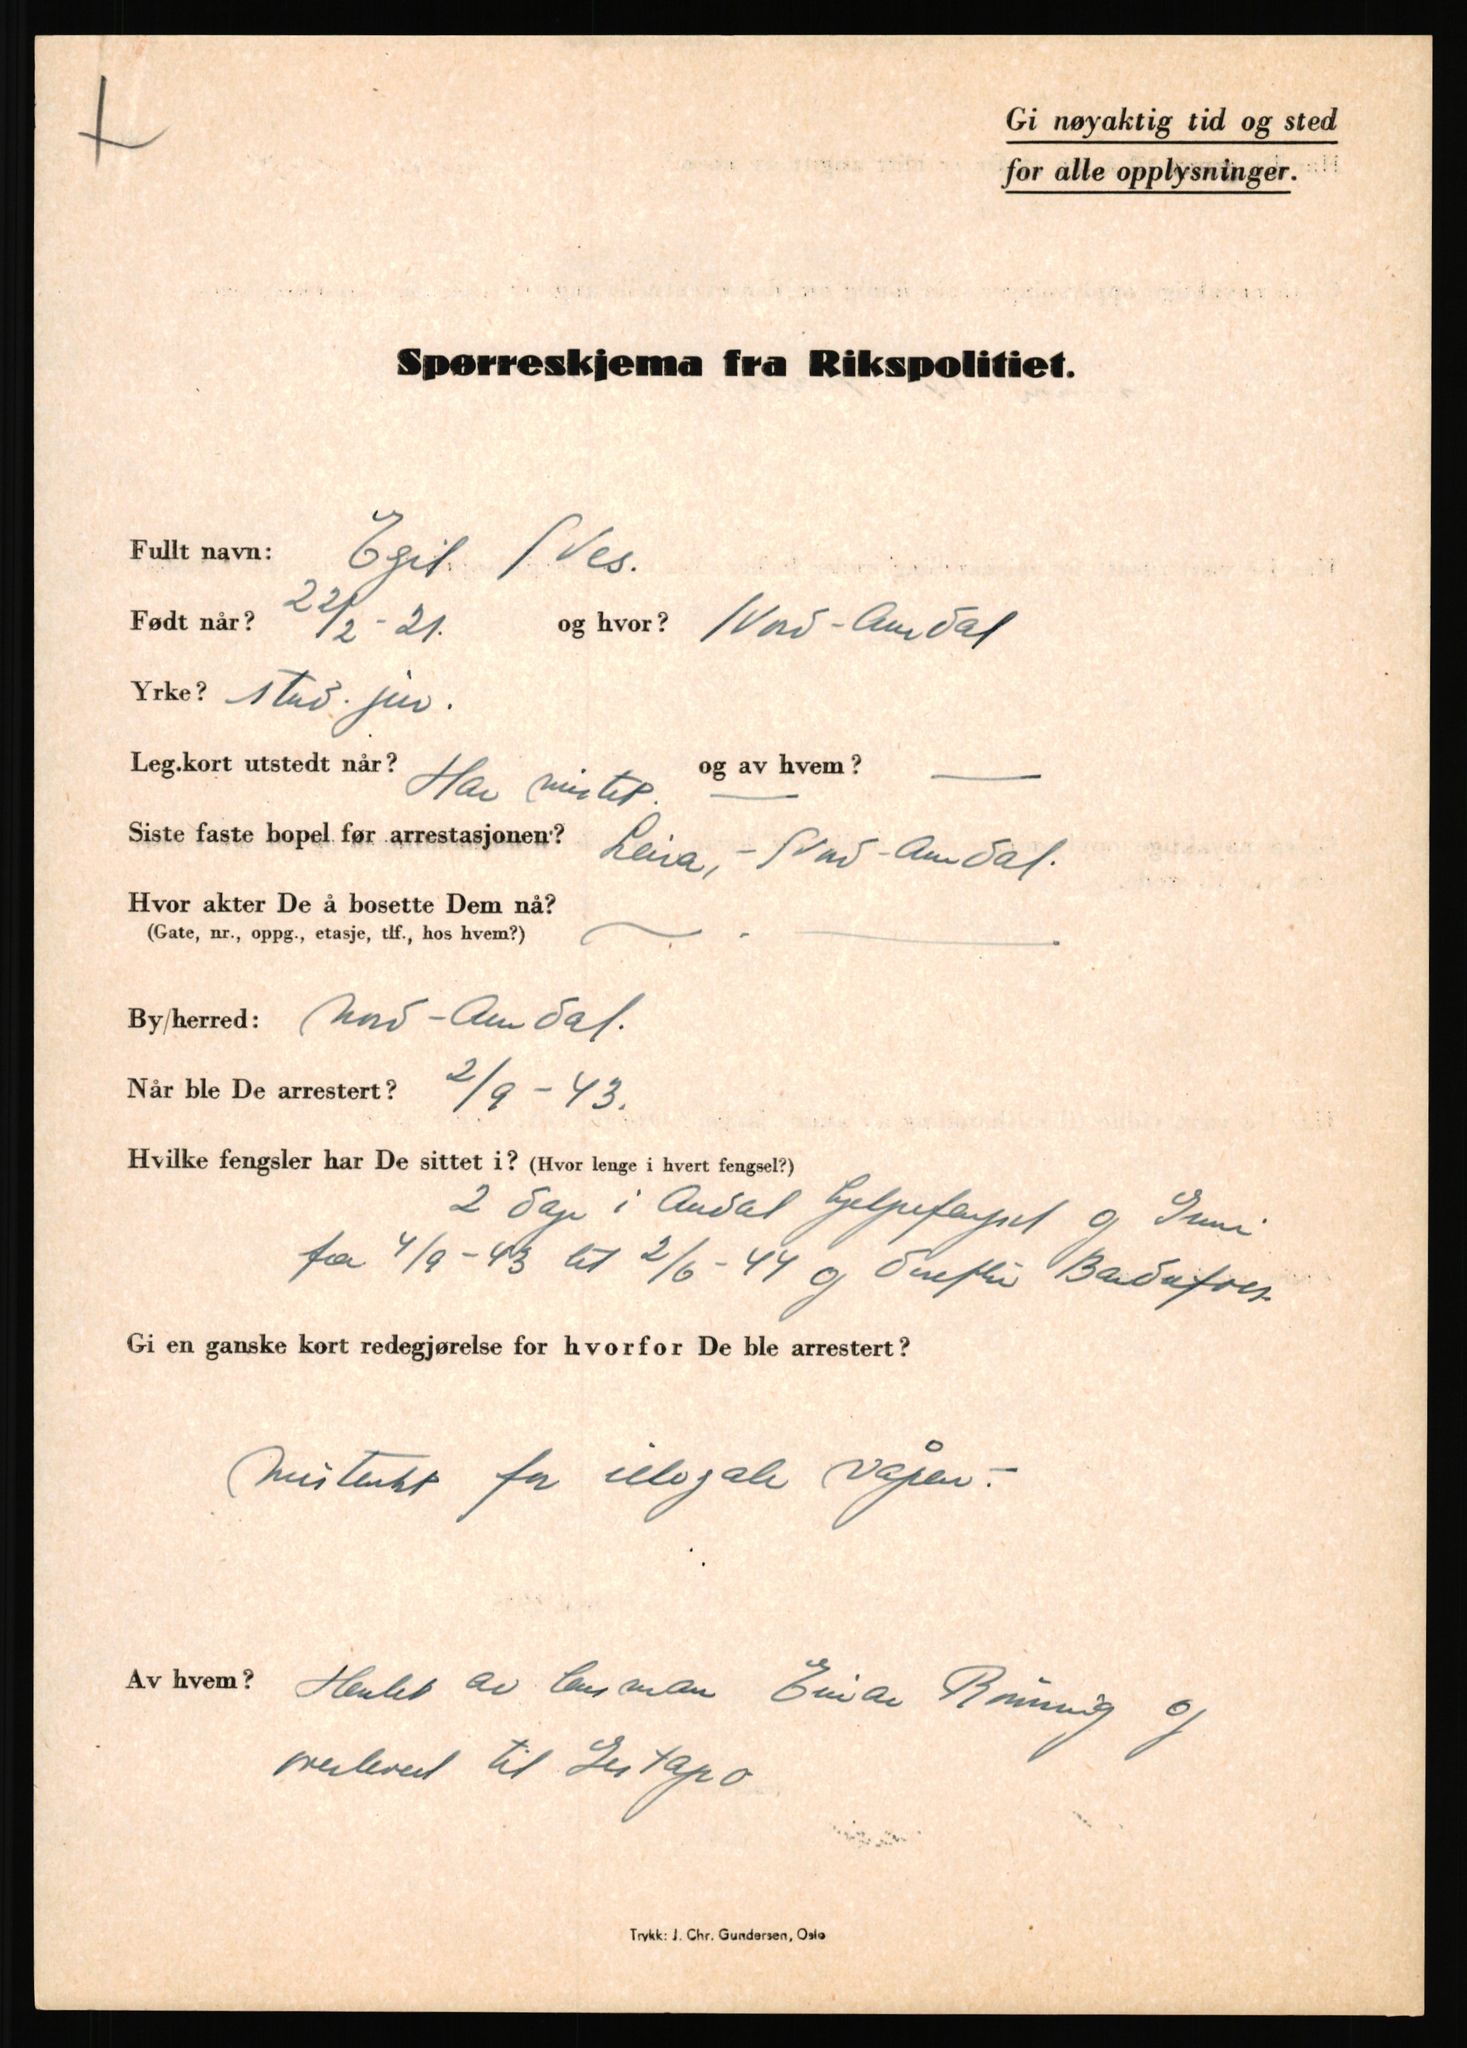 Gi nøyaktig tid og sted
for alle opplysninger.
Spørreskjema fra Rikspolitiet.
Fullt navn: Egil Nes.
Født når? 22/2-21. og hvor? Nord-Aurdal
Yrke? stud. jur.
Leg.kort utstedt når? Har mistet. og av hvem? —
Siste faste bopel før arrestasjonen? Leira, - Nord-Aurdal.
Hvor akter De å bosette Dem nå?
(Gate, nr., oppg., etasje, tlf., hos hvem?)
By/herred: Nord-Aurdal.
Når ble De arrestert? 2/9-43.
Hvilke fengsler har De sittet i? (Hvor lenge i hvert fengsel?)
2 dage i Aurdal hjelpefengsel og Grini
fra 4/9-43 til 2/6-44 og derefter Bardufoss
Gi en ganske kort redegjørelse for hvorfor De ble arrestert?
Mistenkt for illegale våpen.-
Av hvem? Hentet av lensman Einar Rönning og
overlevert til Gestapo
Trykk: J. Chr. Gundersen, Oslo